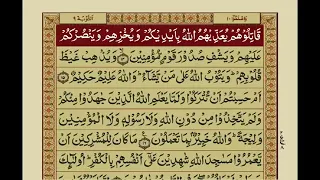 التوبة ٩
واعلموا ١٠
قَاتِلُوْهُمْ يُعَذِّبْهُمُ اللّٰهُ بِاَيْدِيْكُمْ وَيُخْزِهِمْ وَيَنْصُرْكُمْ
عَلَيْهِمْ وَيَشْفِ صُدُوْرَ قَوْمٍ مُّؤْمِنِيْنَ ۝١٤ وَيُذْهِبْ غَيْظَ
قُلُوْبِهِمْ ؕ وَيَتُوْبُ اللّٰهُ عَلٰى مَنْ يَّشَآءُ ؕ وَاللّٰهُ عَلِيْمٌ حَكِيْمٌ ۝١٥
اَمْ حَسِبْتُمْ اَنْ تُتْرَكُوْا وَلَمَّا يَعْلَمِ اللّٰهُ الَّذِيْنَ جٰهَدُوْا مِنْكُمْ
وَلَمْ يَتَّخِذُوْا مِنْ دُوْنِ اللّٰهِ وَلَا رَسُوْلِهٖ وَلَا الْمُؤْمِنِيْنَ
وَلِيْجَةً ؕ وَاللّٰهُ خَبِيْرٌۢ بِمَا تَعْمَلُوْنَ ۝١٦ مَا كَانَ لِلْمُشْرِكِيْنَ اَنْ
يَّعْمُرُوْا مَسٰجِدَ اللّٰهِ شٰهِدِيْنَ عَلٰٓى اَنْفُسِهِمْ بِالْكُفْرِ ؕ اُولٰٓئِكَ